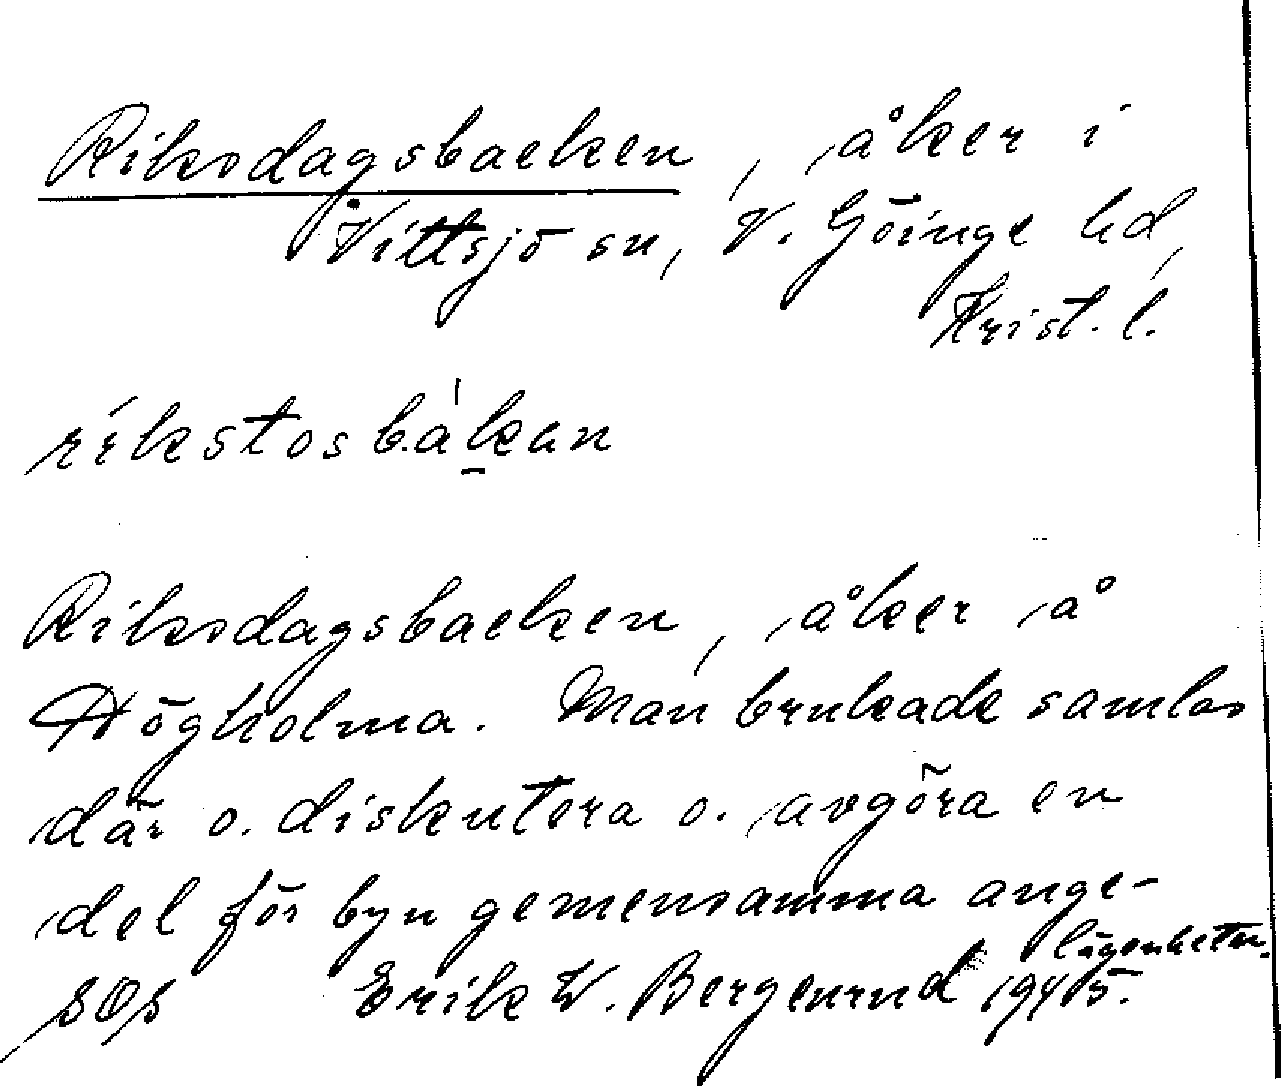 Riksdagsbacken, åker i
Vittsjö sn, V. Göinge hd,
Krist. l.
rikstosbákan
Riksdagsbacken, åker å
Högholma. Man brukade samlas
där o. diskutera o. avgöra en
del för byn gemensamma ange-
lägenheter.
Erik W. 1945.